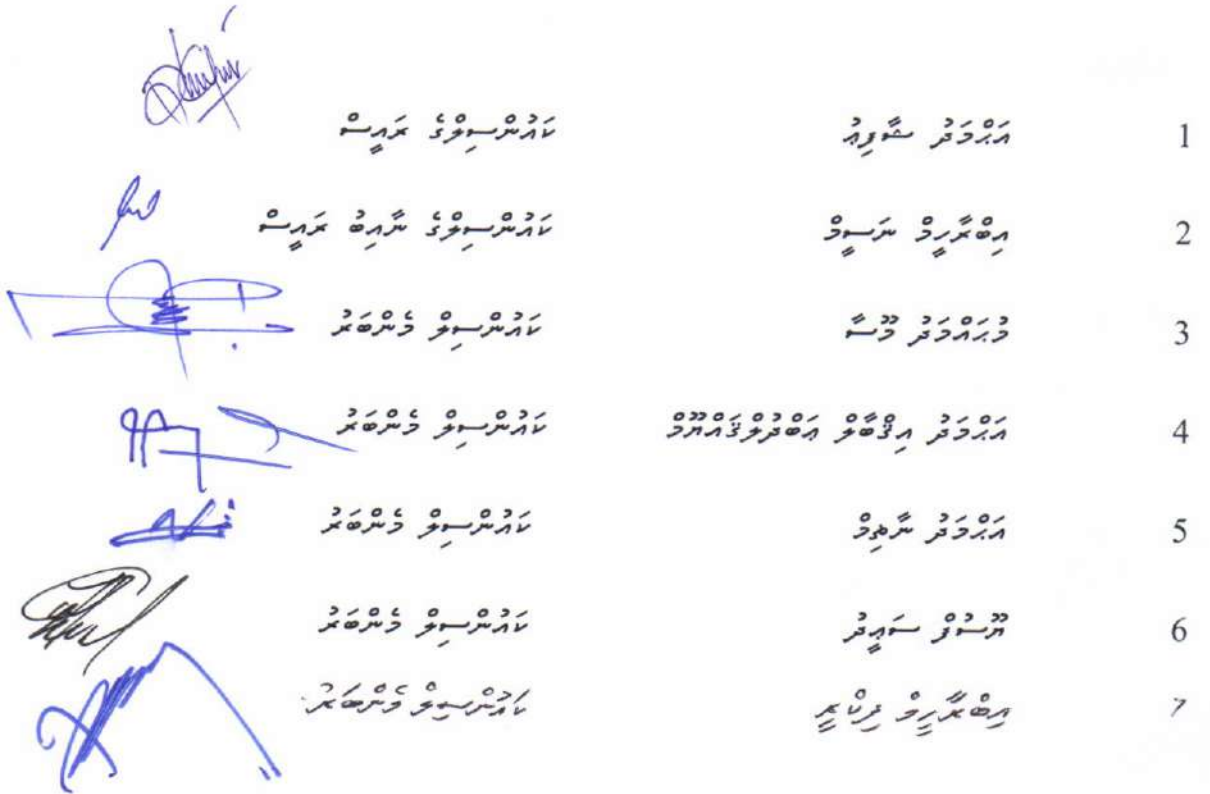 1 އަޙްމަދު ޝާފިޢު ކައުންސިލްގެ ރައީސް
2 އިބްރާހީމް ނަސީމް ކައުންސިލްގެ ނާއިބު ރައީސް
3 މުޙައްމަދު މޫސާ ކައުންސިލް މެންބަރު
4 އަޙްމަދު އިޤްބާލް ޢަބްދުލްޤައްޔޫމް ކައުންސިލް މެންބަރު
5 އަޙްމަދު ނާޡިމް ކައުންސިލް މެންބަރު
6 ޔޫސުފް ސަޢީދު ކައުންސިލް މެންބަރު
7 އިބްރާހީމް ފިކްރީ ކައުންސިލް މެންބަރު.